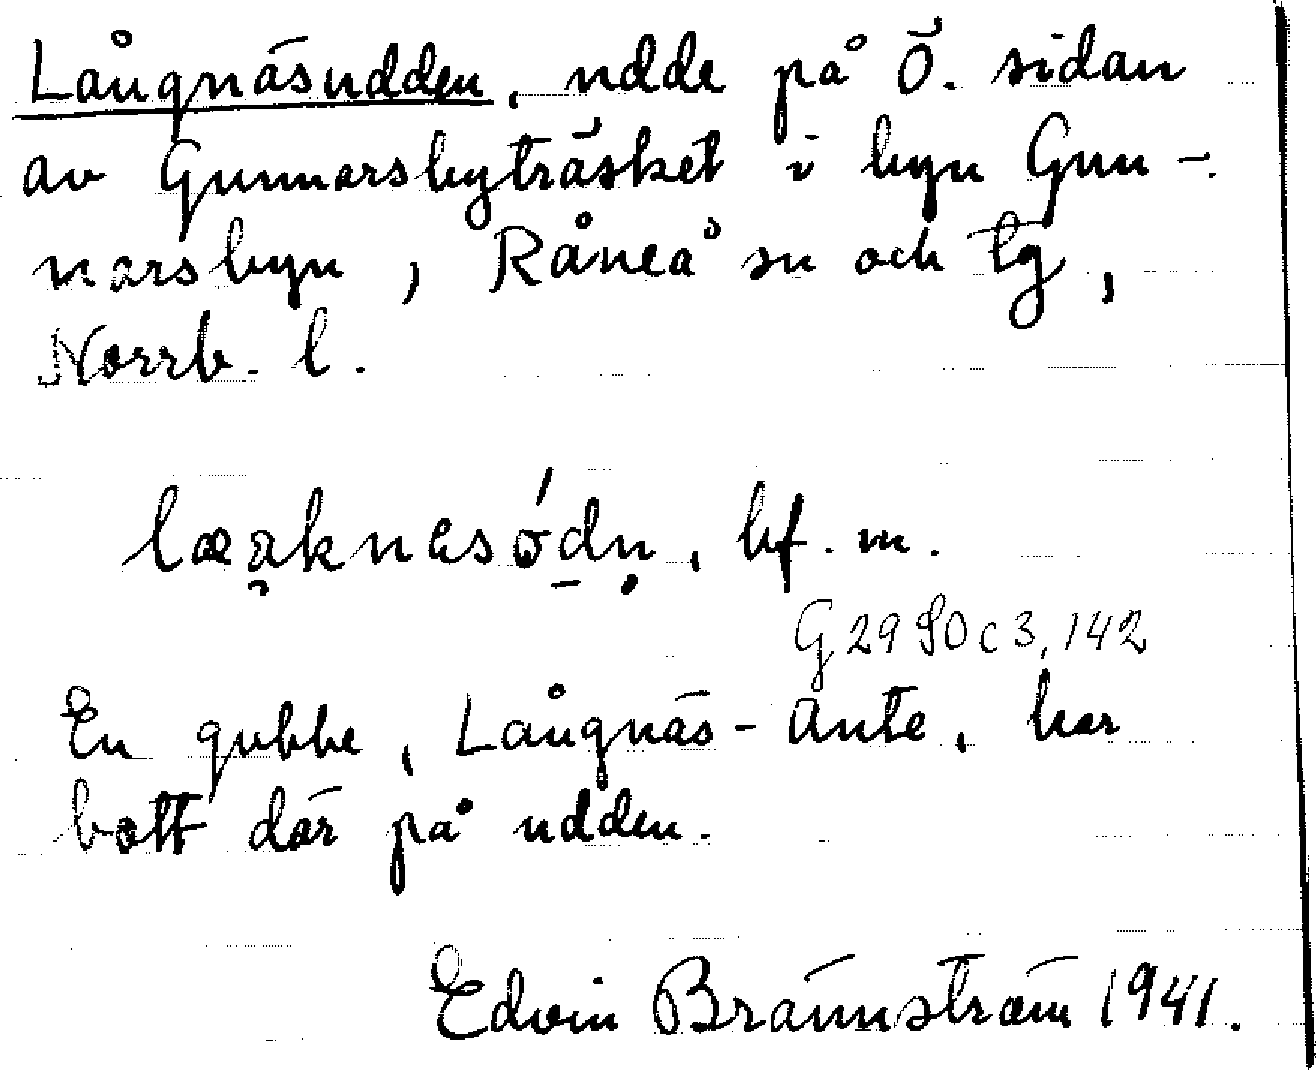 Långnäsudden, udde på Ö. sidan
av Gunnarsbyträsket i byn Gun-
narsbyn, Råneå sn och tg,
Norrb. l.
bf. m.
G 29 SO c 3, 142
En gubbe, Långnäs-Ante, har
bott där på udden.
Edvin Brännström 1941.